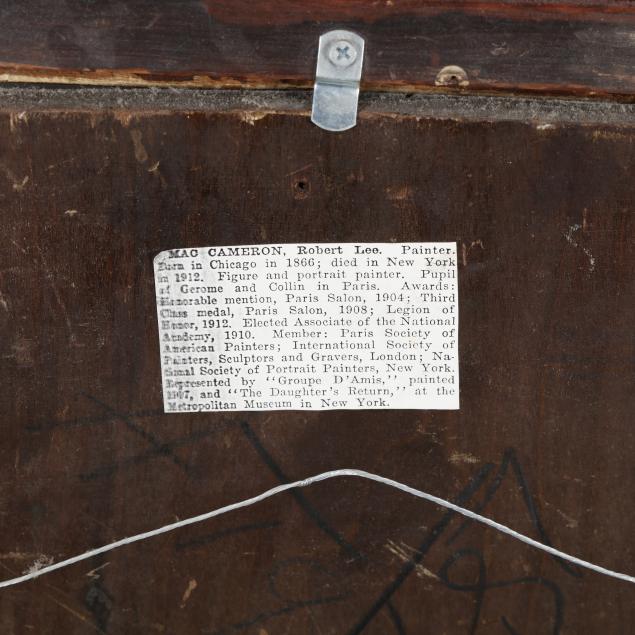 MAC CAMERON, Robert Lee. Painter.
Born in Chicago in 1866; died in New York
in 1912. Figure and portrait painter. Pupil
of Gerome and Collin in Paris. Awards:
Honorable mention, Paris Salon, 1904; Third
Class medal, Paris Salon, 1908; Legion of
Honor, 1912. Elected Associate of the National
Academy, 1910. Member: Paris Society of
American Painters; International Society of
Painters, Sculptors and Gravers, London; Na-
tional Society of Portrait Painters, New York.
Represented by "Groupe D'Amis," painted
1907, and "The Daughter's Return," at the
Metropolitan Museum in New York.